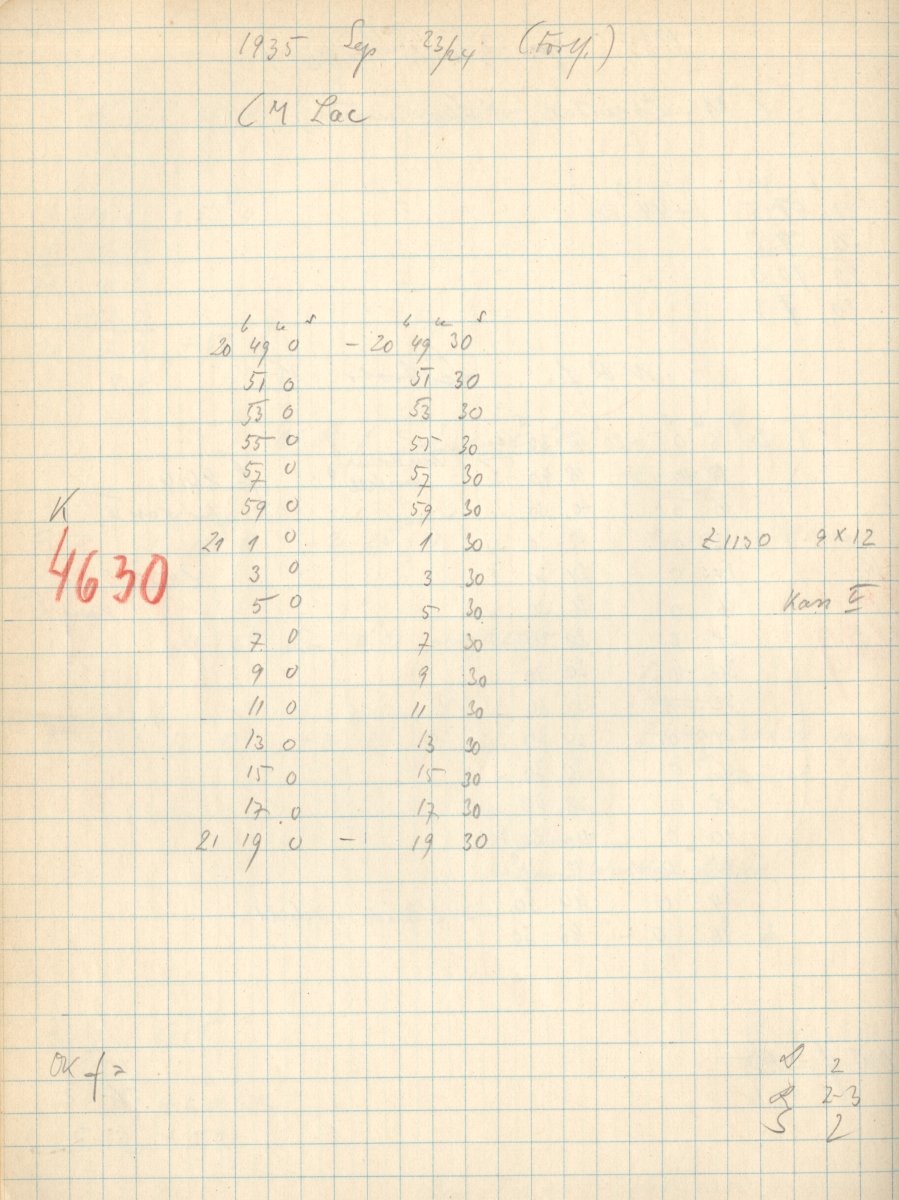 1935 Sep 23/24 (Forts.)
CM Lac
h m s h m s
20 49 0 - 20 49 30
51 0 51 30
53 0 53 30
55 0 55 30
57 0 57 30
K 59 0 59 30
4630 21 1 0 1 30 Z1130 9×12
3 0 3 30
5 0 5 30 Kass II
7 0 7 30
9 0 9 30
11 0 11 30
13 0 13 30
15 0 15 30
17 0 17 30
21 19 0 - 19 30
OK f = D 2
R 2-3
S 2